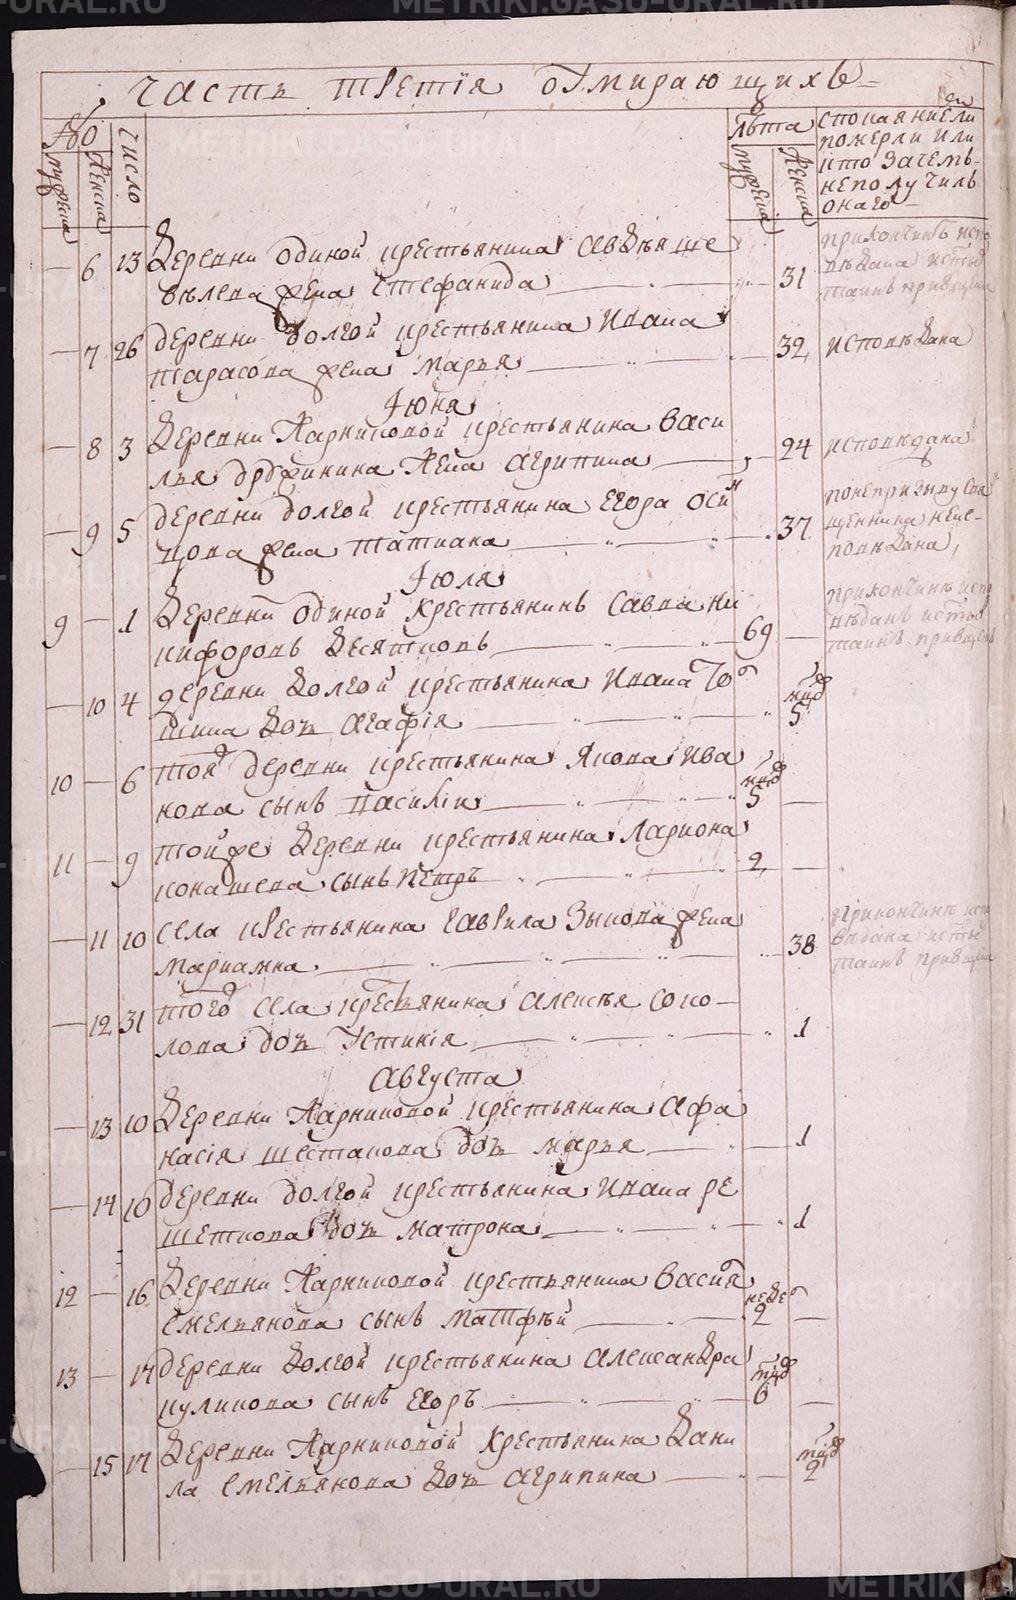 METRIKI.GASO-URAL.RU
часть третїя оумирающихъ
№
мужеска
женска
число
лѣта
мужеска
женска
с покаяниемъ ли
померли или
кто зачемъ
неполучилъ
онаго
6 13 деревни одиной крестьянина авдѣя ше
велева жена стефанида 31
при кончинѣ испо
вѣдана и стые
таинъ приобщена
7 26 деревни долгой крестьянина ивана
тарасова жена марья 32 исповѣдана
Іюня
8 3 деревни Парниковой крестьянина васи
лья жена агрипина 24 исповѣдана
9 5 деревни долгой крестьянина егора оси
пова жена татиана 37
по непризыву свя
щенника неис
повѣдана
Іюля
9 1 деревни одиной крестьянинъ савва ни
кифоровъ десятковъ 69
при кончинѣ испо
вѣданъ и стых
таинъ приобщенъ
10 4 деревни долгой крестьянина ивана
дочь агафія нед 5
10 6 той деревни крестьянина якова ива
нова сынъ василїи нед 5
11 9 той же деревни крестьянина лариона
конашева сынъ петръ 2
11 10 села крестьянина гаврила зыкова жена
марианна 38
при кончинѣ испо
ведана и стые
таинъ приобщена
12 31 того села крестьянина алексѣя соко
лова дочь устинія 1
августа
13 10 деревни Парниковой крестьянина афа
насія шестакова дочь марья 1
14 10 деревни долгой крестьянина ивана ре
шеткова дочь матрона 1
12 16 деревни Парниковой крестьянина василья
емельянова сынъ матфѣй недел 2
13 17 деревни долгой крестьянина александра
куликова сынъ егоръ 6
15 17 деревни Парниковой крестьянина дани
ла емельянова дочь агрипина 2
METRIKI.GASO-URAL.RU